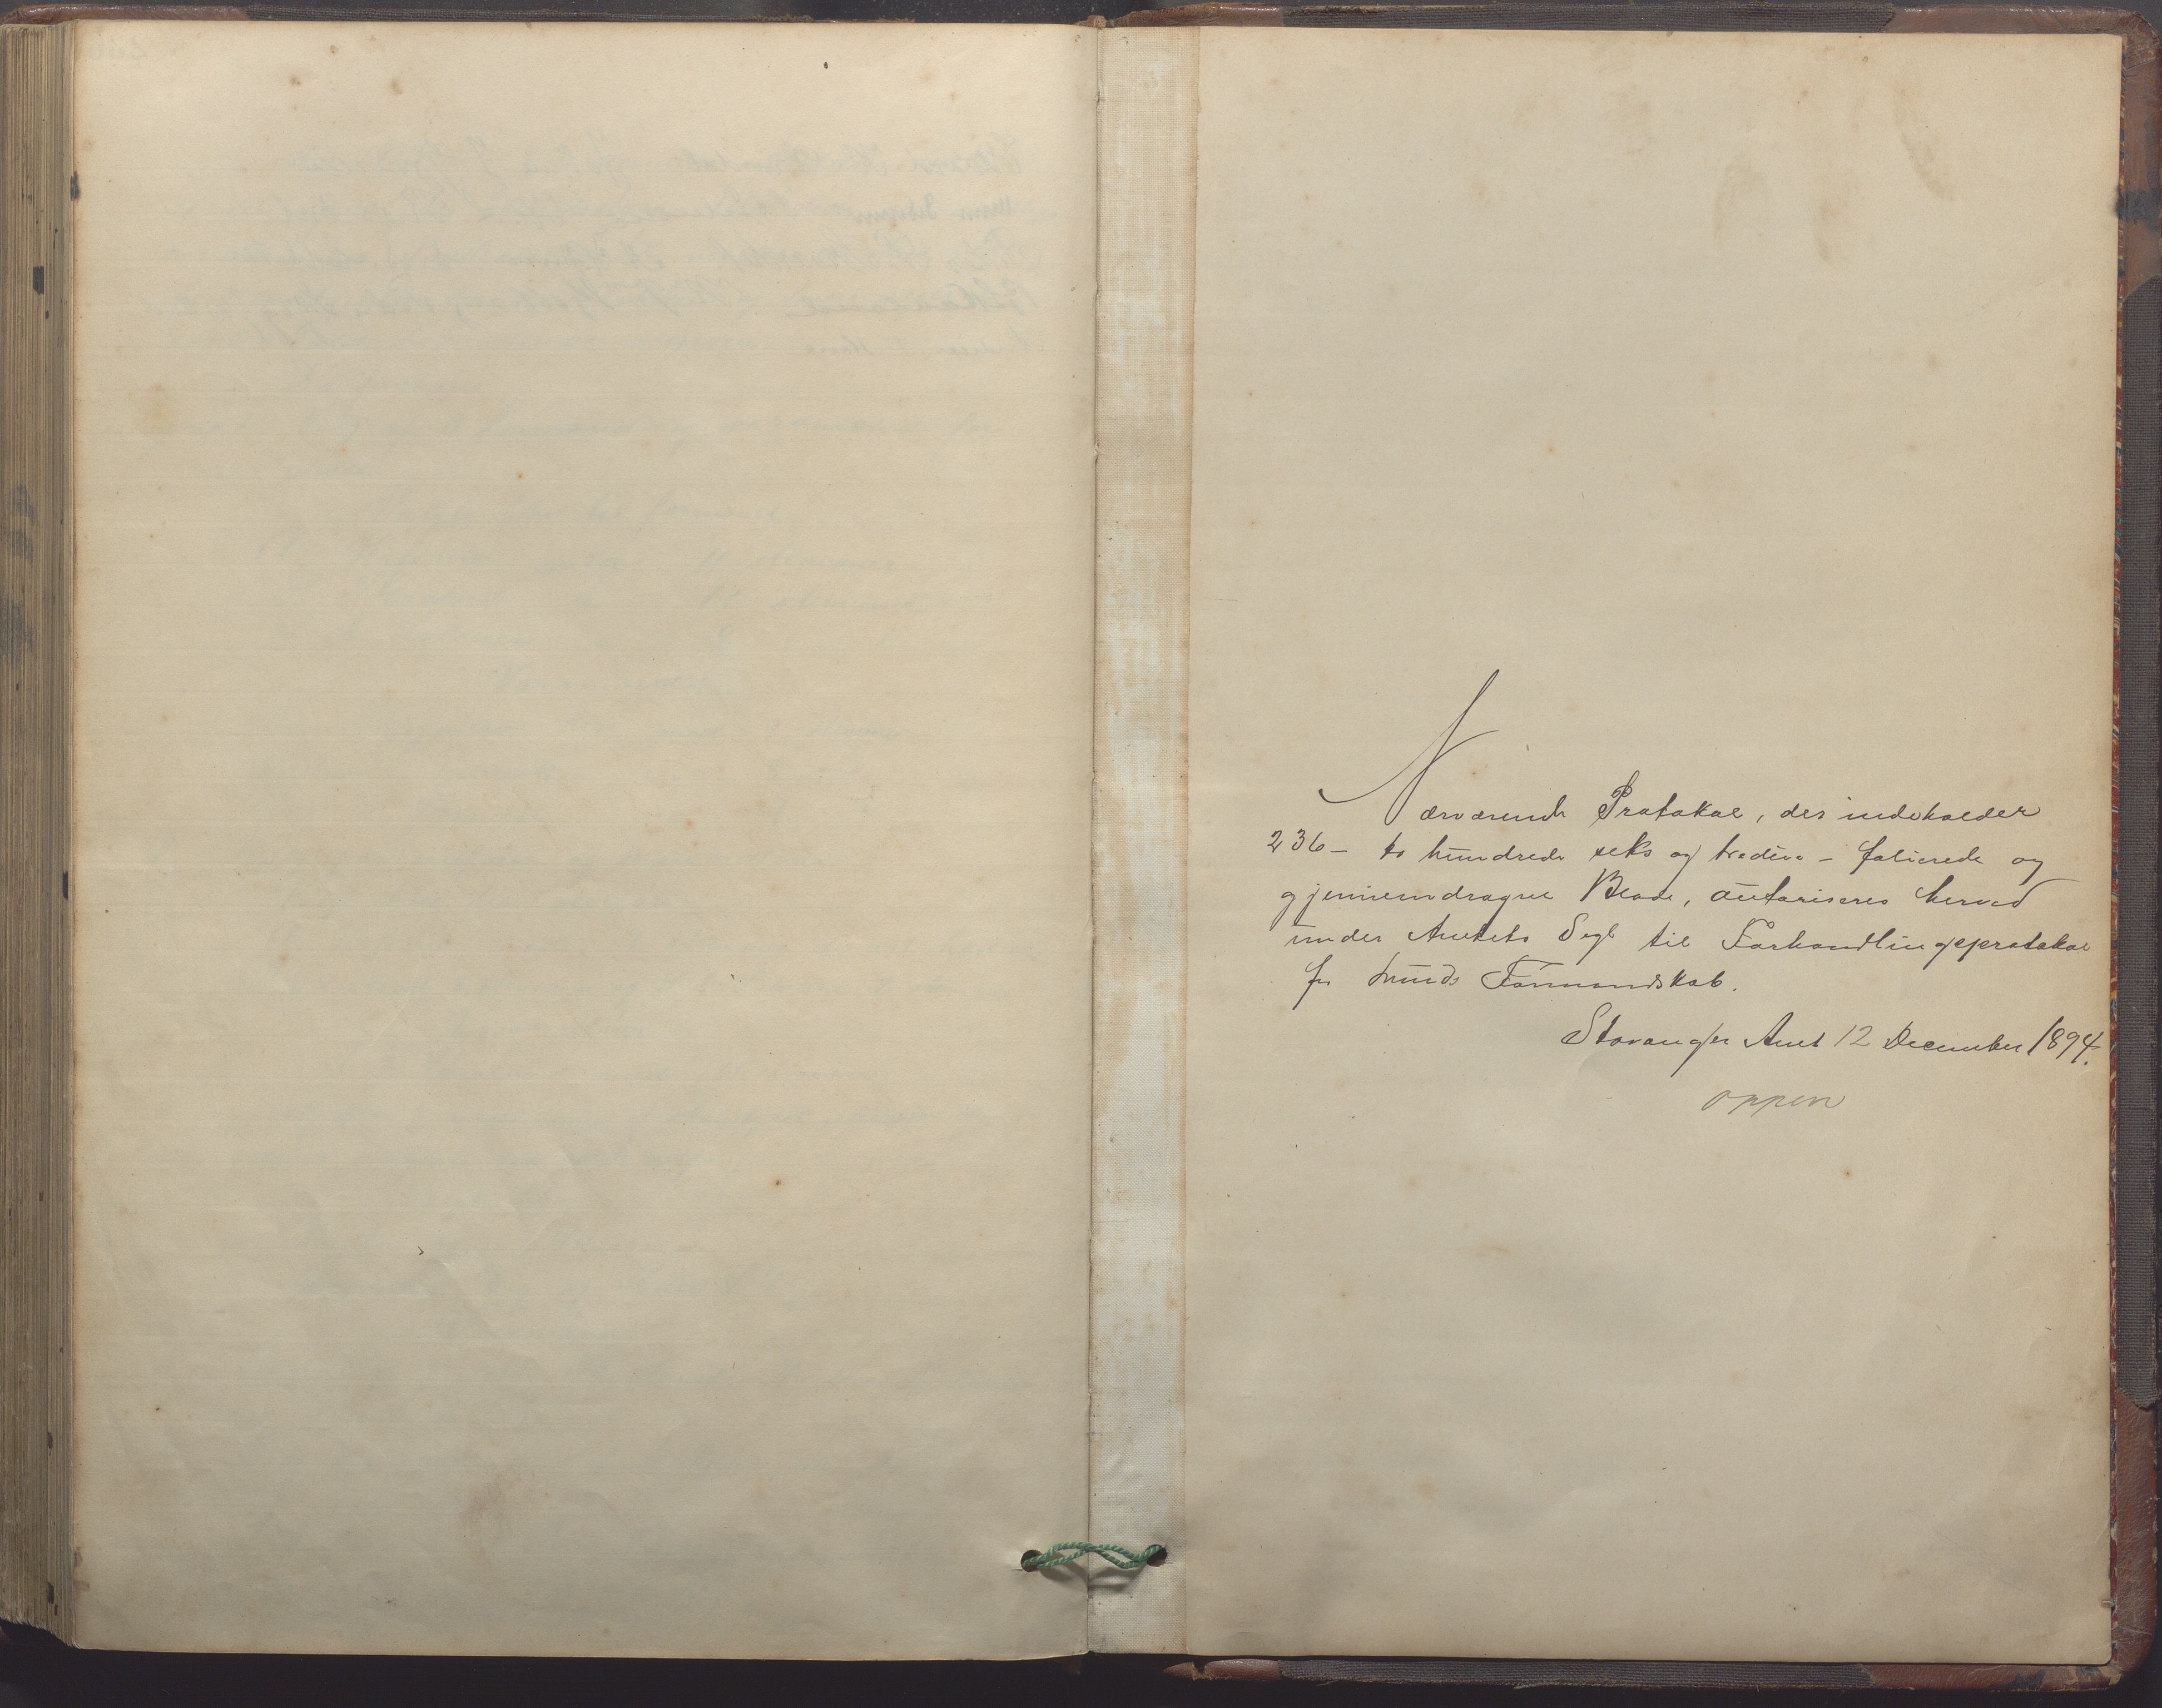 Nærværende Protokol, der indeholder
236 - to hundrede seks og tredive - folierede og
gjennemdragne Blade, autoriseres herved
under Amtets Segl til Forhandlingsprotokol
for Lunds Formandskab.
Stavanger Amt 12 December 1894.
Oppen